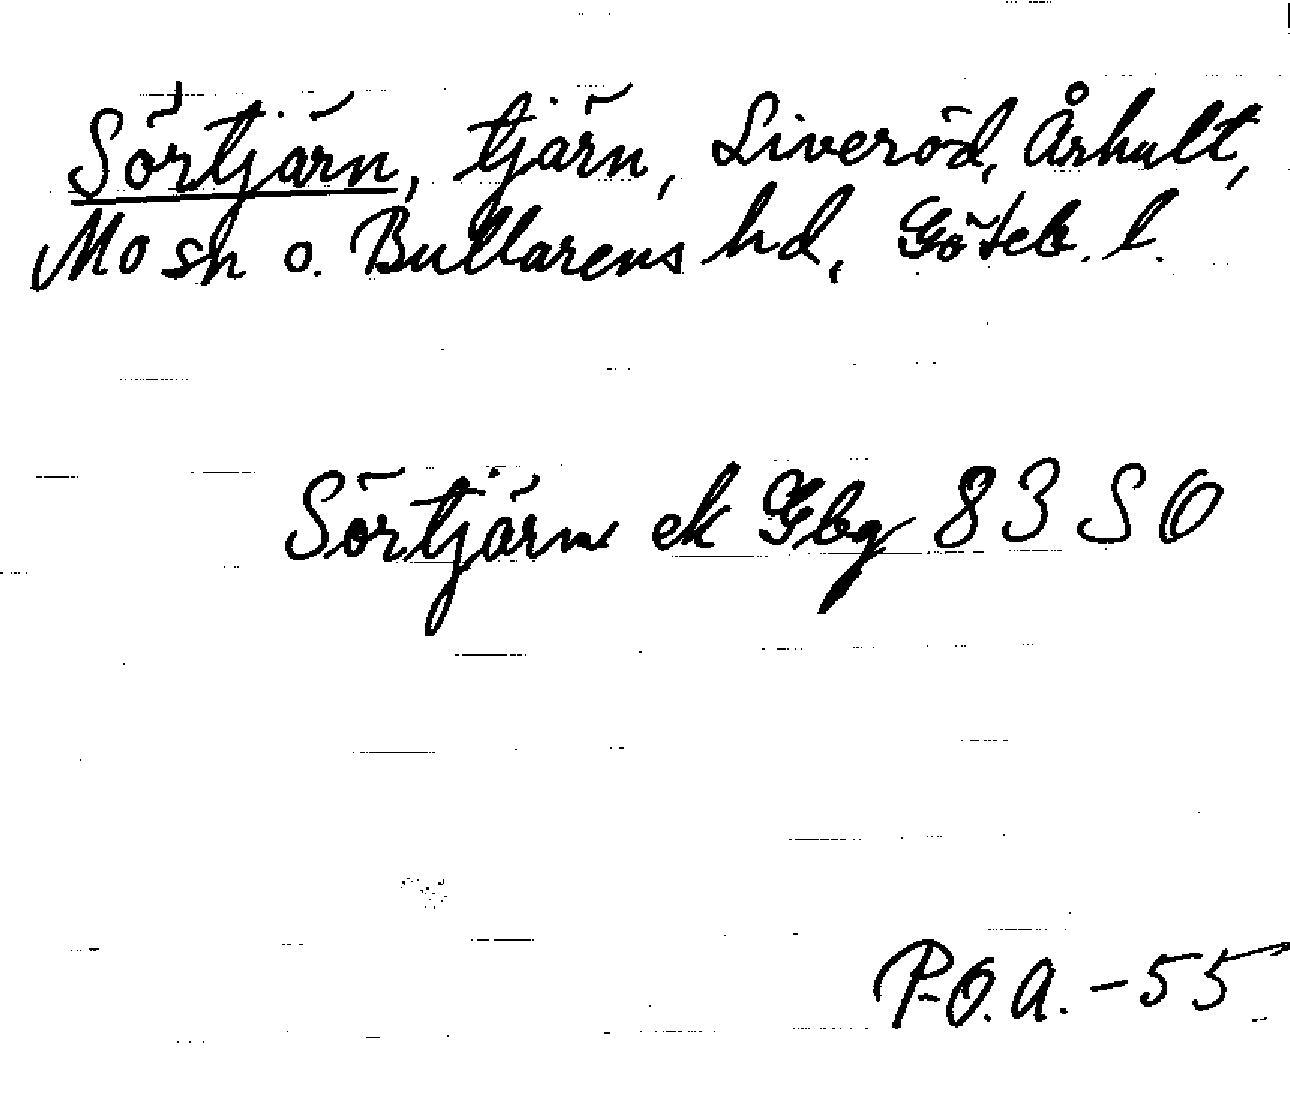 Sörtjärn, tjärn, Liveröd, Århult,
Mo sn o. Bullarens hd, Göteb. l.
Sörtjärn ek Gbg 83 SO
P.O.A. -55